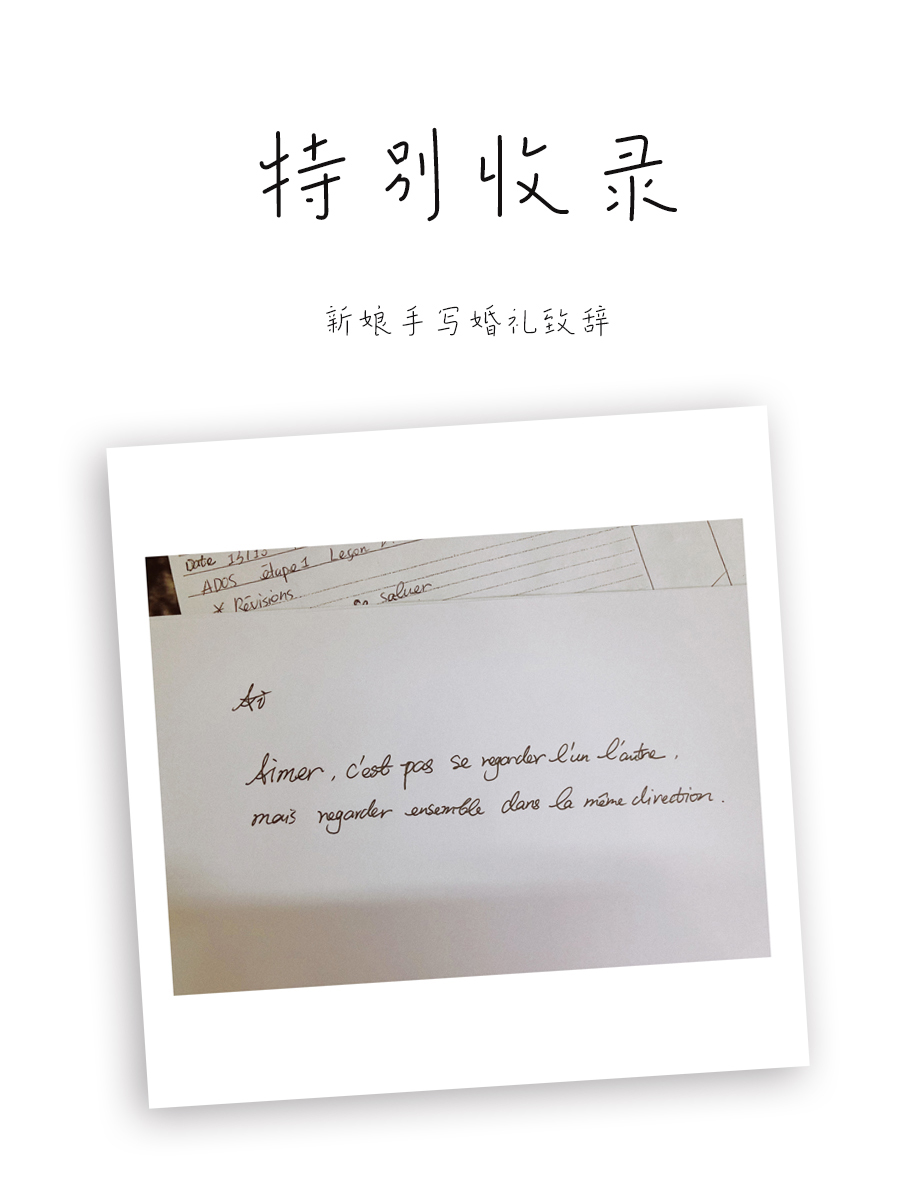 特别收录
新娘手写婚礼致辞
Date 13/10
ADOS étape 1 Leçon
* Révisions
saluer
Aimer, c'est pas se regarder l'un l'autre,
mais regarder ensemble dans la même direction.